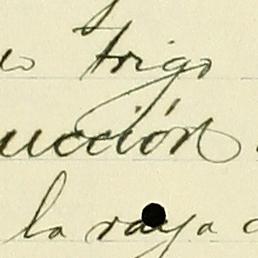 trigo
ucción
la raya